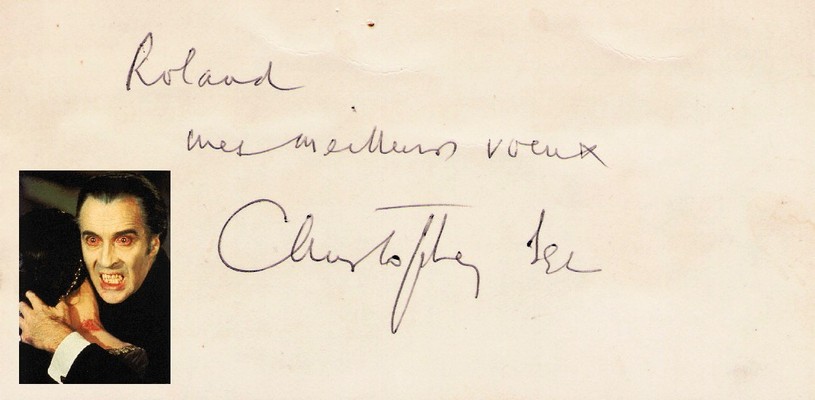 Roland
mes meilleurs voeux
Christopher Lee